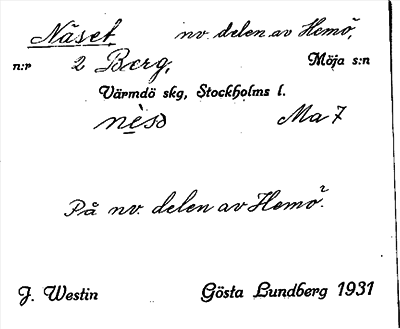 Näset nv. delen av Hemö,
n:r 2 Berg, Möja s:n
Värmdö skg, Stockholms l.
nèsə Ma 7
På nv. delen av Hemö.
J. Westin Gösta Lundberg 1931